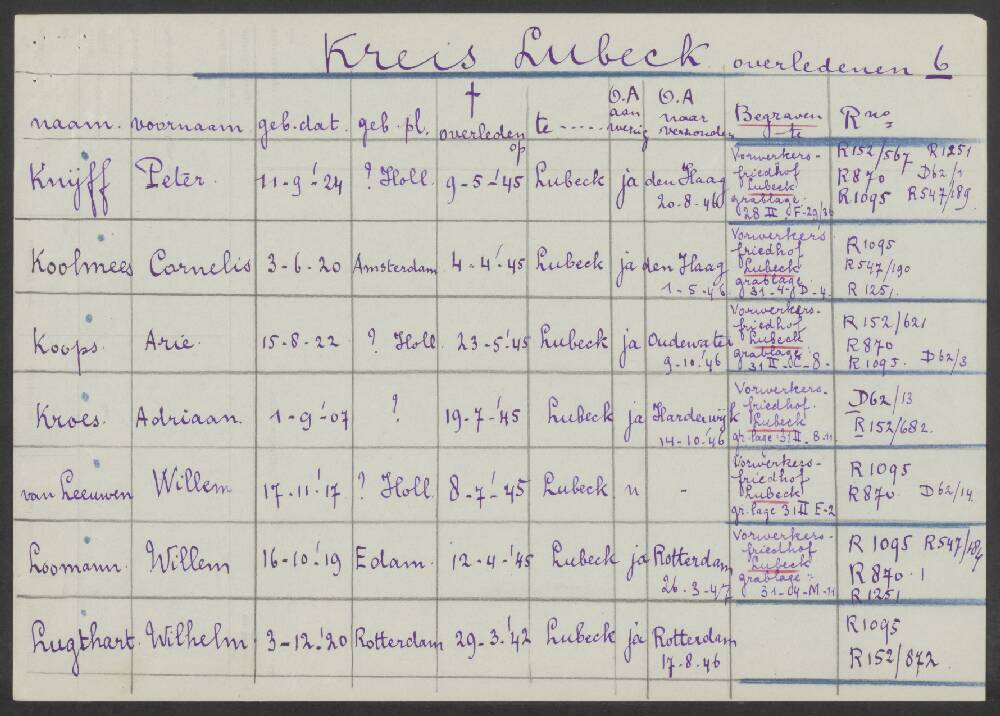 Kreis Lubeck overledenen 6
naam. voornaam geb. dat. geb. pl. † overleden op te ----- O.A aan wezig O.A naar verzonden Begraven te R no
Knijff Peter. 11-9-'24 ? Holl. 9-5-'45 Lubeck ja den Haag 20-8-46 Vorwerkers-friedhof Lubeck grablage: 28 II F-29/36 R152/567 R1251 R870 D62/1 R1095 R547/189
Koolmees Cornelis 3-6-20 Amsterdam 4-4-'45 Lubeck ja den Haag 1-5-46 Vorwerkers friedhof Lubeck grablage R1095 R547/190 R1251.
Koops. Arie. 15-8-22 ? Holl. 23-5-'45 Lubeck ja Oudewater 9-10-'46 Vorwerkers-friedhof Lubeck grablage: R152/621 R870 R1095. D62/3
Kroes. Adriaan. 1-9-'07 ? 19-7-'45 Lubeck ja Harderwijk 14-10-'46 Vorwerkers-friedhof. Lubeck gr. lage 31 II. 8-11 D62/13 R152/682.
van Leeuwen Willem 17-11-'17 ? Holl. 8-7-'45 Lubeck n - Vorwerkers-friedhof Lubeck gr. lage 31 II E-2 R1095 R870. D62/14
Loomann. Willem 16-10-'19 Edam. 12-4-'45 Lubeck ja Rotterdam 26-3-47 Vorwerkers-friedhof Lubeck grablage: 31-04-M-11 R1095 R547/184 R870.1 R1251
Lugthart. Wilhelm. 3-12-'20 Rotterdam 29-3-'42 Lubeck ja Rotterdam 17-8-46 R1095 R152/872.